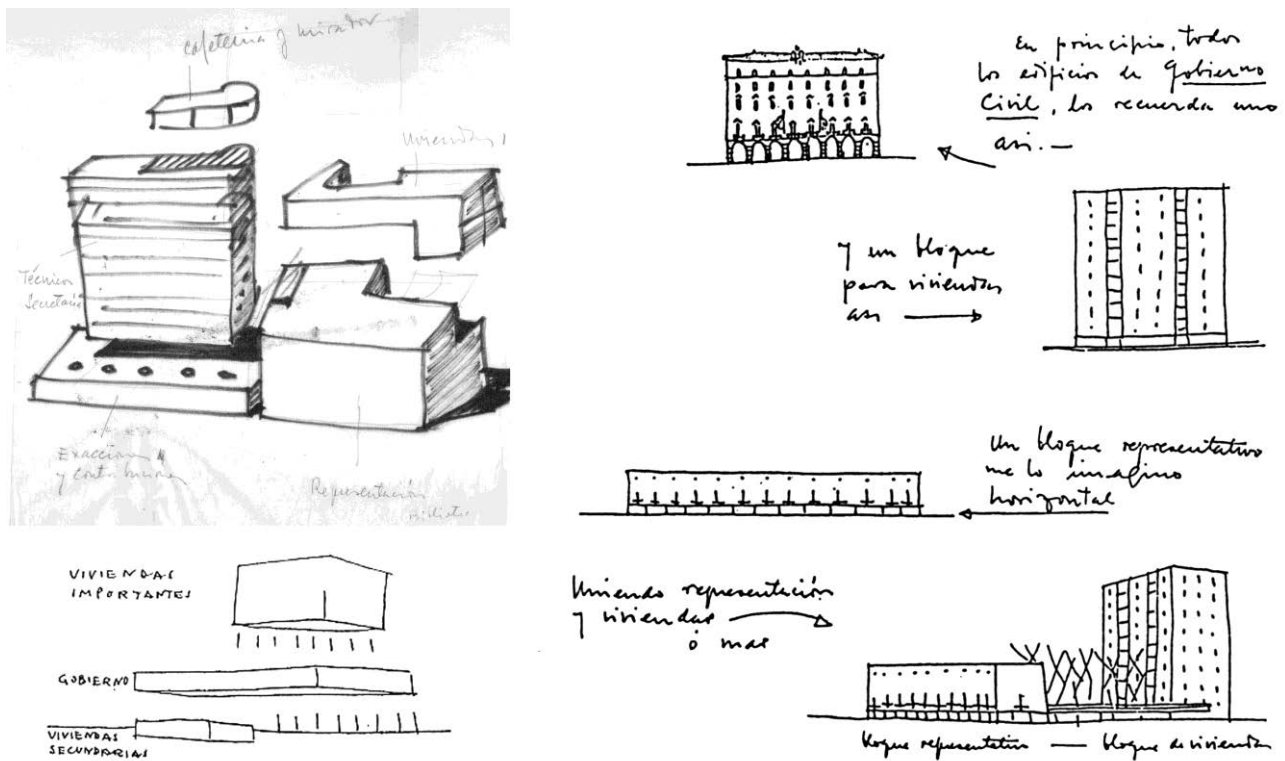 cafetería y mirador
viviendas
Técnicos
Secretaría
Exacciones
y contribuciones
Representación
VIVIENDAS
IMPORTANTES
GOBIERNO
VIVIENDAS
SECUNDARIAS
En principio, todos
los edificios de Gobierno
Civil, los recuerda uno
asi. —
y un bloque
para viviendas
asi
Un bloque representativo
me lo imagino
horizontal
Uniendo representación
y viviendas
ó mas
bloque representativo — bloque de viviendas